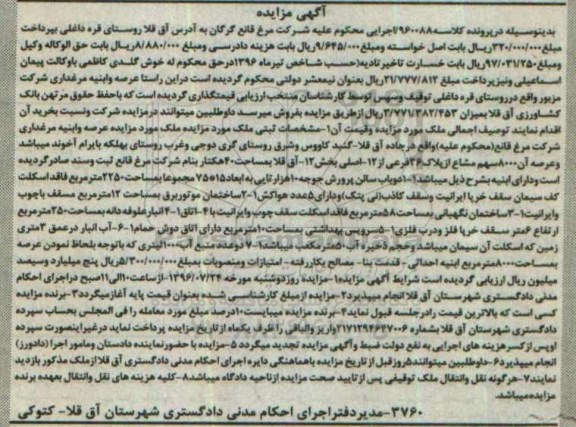 آگهی مزایده
بدینوسیله درپرونده کلاسه۹۶۰۰۸۸اجرایی محکوم علیه شرکت مرغ قانع گرگان به آدرس آق قلا روستای قره داغلی بپرداخت
مبلغ۳۲۰/۰۰۰/۰۰۰ریال بابت اصل خواسته ومبلغ۹/۶۴۵/۰۰۰ریال بابت هزینه دادرسی ومبلغ ۸/۸۸۰/۰۰۰ریال بابت حق الوکاله وکیل
ومبلغ۹۷/۰۳۱/۲۵۰ریال بابت خسارت تاخیرتادیه(حسب شاخص تیرماه ۱۳۹۶درحق محکوم له خوش گلدی کاظمی باوکالت پیمان
اسماعیلی ونیزپرداخت مبلغ ۲۱/۷۷۷/۸۱۲ریال بعنوان نیمعشر دولتی محکوم گردیده است دراین راستا عرصه وابنیه مرغداری شرکت
مزبور واقع درروستای قره داغلی توقیف وسپس توسط کارشناسان منتخب ارزیابی قیمتگذاری گردیده است که باحفظ حقوق مرتهن بانک
کشاورزی آق قلابمیزان ۳/۷۷۱/۳۸۲/۴۵۳ریال ازطریق مزایده بفروش میرسد داوطلبین میتوانند درمزایده شرکت ونسبت بخرید آن
اقدام نمایند توصیف اجمالی ملک مورد مزایده وقیمت آن۱-مشخصات ثبتی ملک مورد مزایده ملک مورد مزایده عرصه وابنیه مرغداری
شرکت مرغ قانع(محکوم علیه)واقع درجاده آق قلا-گنبد کاووس وشرق روستای گری دوجی وغرب روستای بهلکه بایرام آخوند میباشد
وعرصه آن۸۰۰۰سهم مشاع ازپلاک۳۶فرعی از۱۲-اصلی بخش۱۲-آق قلا بمساحت۴۰هکتار بنام شرکت مرغ قانع ثبت وسند صادرگردیده
است ودارای ابنیه بشرح ذیل میباشد۱-دوباب سالن پرورش جوجه۱۰هزارتایی به ابعاد۱۵×۷۵مجموعا بمساحت۲۲۵۰مترمربع فاقداسکلت
کف سیمان سقف خرپا ایرانیت وسقف کاذب(نی پتک)ودارای۵عدد هواکش۲-ساختمان موتوربرق بمساحت ۱۲مترمربع مسقف باچوب
وایرانیت۳-ساختمان نگهبانی بمساحت۵۸مترمربع فاقداسکلت سقف چوب وایرانیت با۴-اتاق۴-انبارعلوفه دانه بمساحت۲۵۰مترمربع
ارتفاع ۶متر سقف خرپا فلز ودرب فلزی۵-سرویس بهداشتی بمساحت۱۰مترمربع دارای اتاق دوش حمام۶-آب انبار درعمق ۳متری
زمین که اسکلت آن سیمان میباشد وحجم ذخیره آب۵۰مترمکعب میباشد۷-دوعدد منبع آب۱۰۰۰لیتری که باتوجه بلحاظ نمودن عرصه
بمساحت۸۰۰۰مترمربع ابنیه احداثی - قدمت بنا- مصالح بکاررفته- امتیازات ومنصوبات بمبلغ۵/۳۰۰/۰۰۰/۰۰۰ریال پنج میلیارد وسیصد
میلیون ریال ارزیابی گردیده است شرایط آگهی مزایده۱-مزایده روزدوشنبه مورخه ۱۳۹۶/۰۷/۲۴ازساعت۱۰الی۱۱صبح دراجرای احکام
مدنی دادگستری شهرستان آق قلاانجام میپذیرد۲-مزایده ازمبلغ کارشناسی شده بعنوان قیمت پایه آغازمیگردد۳-برنده مزایده
کسی است که بالاترین قیمت رادرجلسه قبول نماید۴-برنده مزایده میبایست۱۰درصد مبلغ مورد معامله را فی المجلس بحساب سپرده
دادگستری شهرستان آق قلا بشماره ۲۱۷۱۲۹۴۶۲۷۰۰۶واریز والباقی را ظرف یکماه ازتاریخ مزایده پرداخت نماید درغیراینصورت سپرده
اوپس ازکسرهزینه های اجرایی به نفع دولت ضبط وآگهی مزایده تجدید میگردد ۵-مزایده با حضورنماینده دادستان ومامور اجرا (دادورز)
انجام میپذیرد۶-داوطلبین میتوانند۵روزقبل ازتاریخ مزایده باهماهنگی دایره اجرای احکام مدنی دادگستری آق قلاازملک مذکور بازدید
نمایند۷-هرگونه نقل وانتقال ملک توقیفی پس ازتایید صحت مزایده ازناحیه دادگاه میباشد۸-کلیه هزینه های نقل وانتقال بعهده برنده
مزایده میباشد.
۳۷۶۰-مدیردفتراجرای احکام مدنی دادگستری شهرستان آق قلا- کتوکی